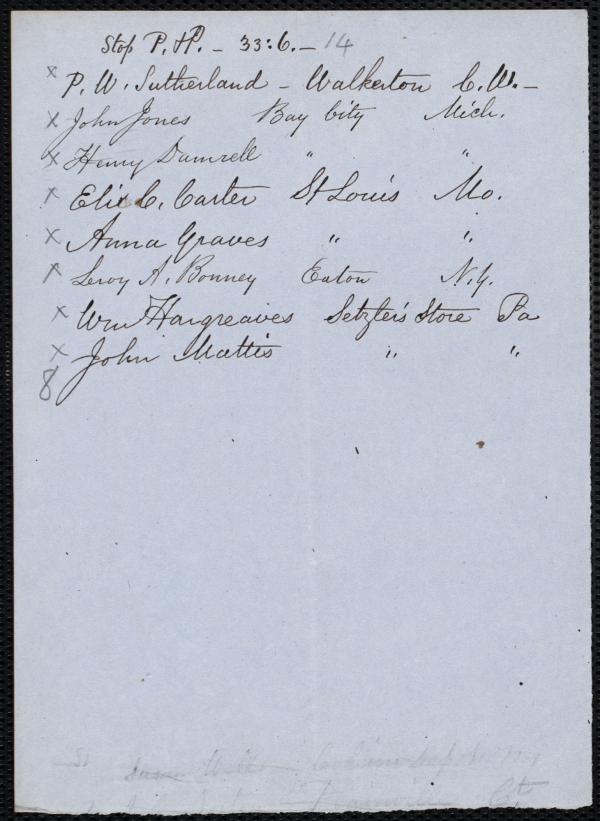 Stop P. H. - 33:6. - 14
x P. W. Sutherland - Walkerton C. W. -
x John Jones Bay City Mich.
x Henry Damrell " "
x Eli C. Carter St Louis Mo.
x Anna Graves " "
x Leroy A. Bonney Eaton N.Y.
x Wm Hargreaves Setzler's Store Pa
x John Mattis " "
8